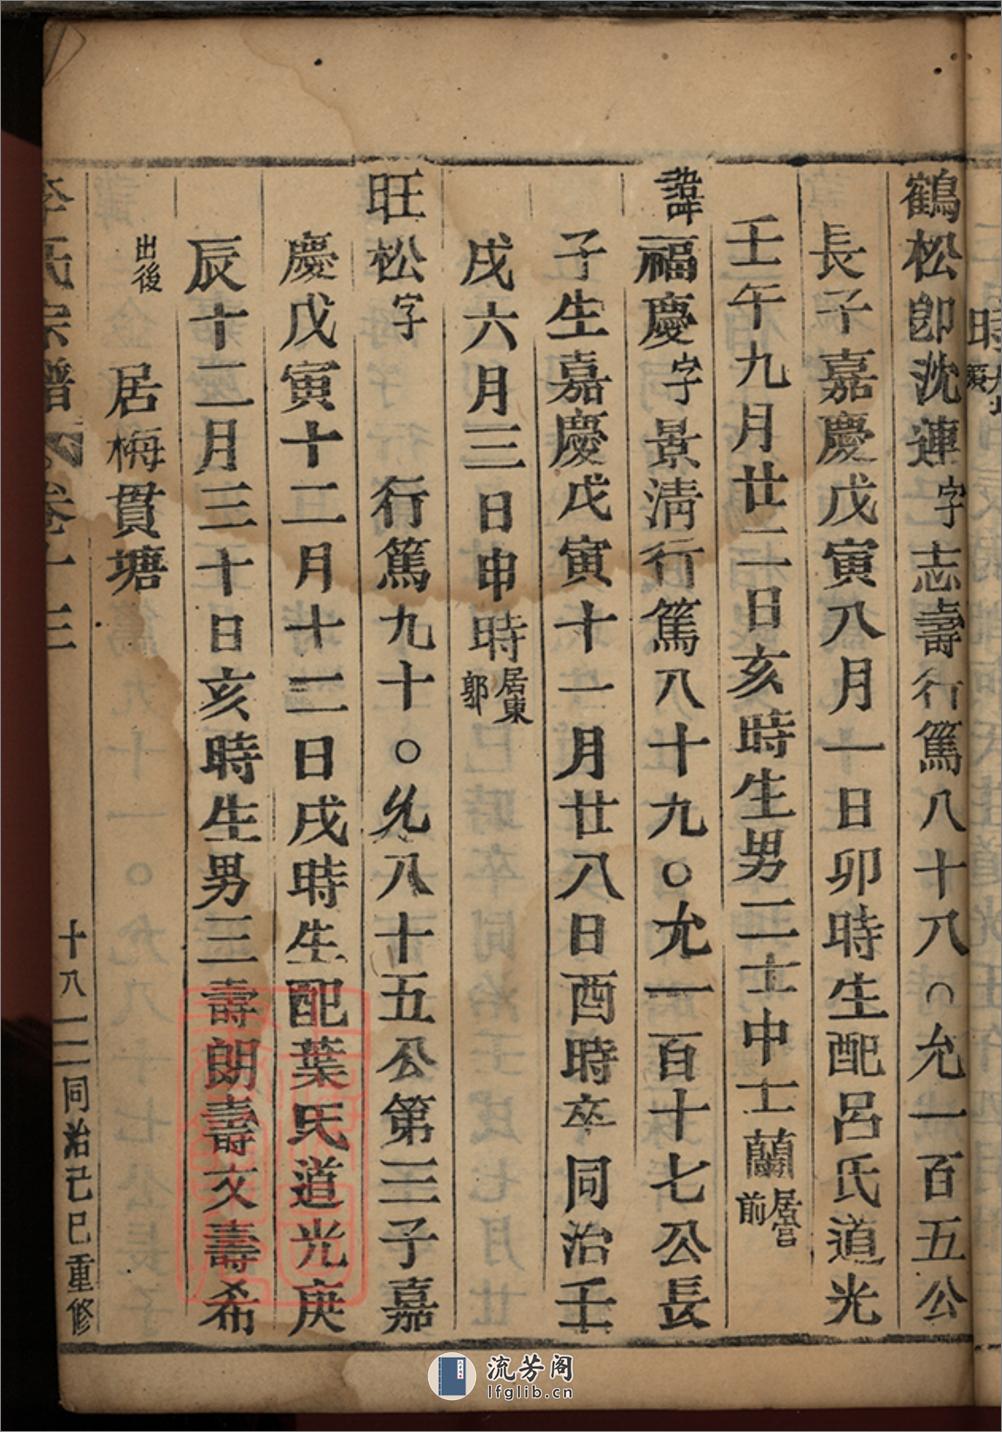 鶴松卽沈連字志壽行篤八十八○允一百五公
長子嘉慶戊寅八月一日卯時生配呂氏道光
壬午九月廿二日亥時生男二士中士蘭居官前
諱福慶字景淸行篤八十九○允一百十七公長
子生嘉慶戊寅十一月廿八日酉時卒同治壬
戌六月三日申時居東鄔
旺松字 行篤九十○允八十五公第三子嘉
慶戊寅十二月十二日戌時生配葉氏道光庚
辰十二月三十日亥時生男三壽朗壽文壽希
出後 居梅貫塘
李氏宗譜 卷十三 十八 同治己巳重修
流芳阁
lfglib.cn